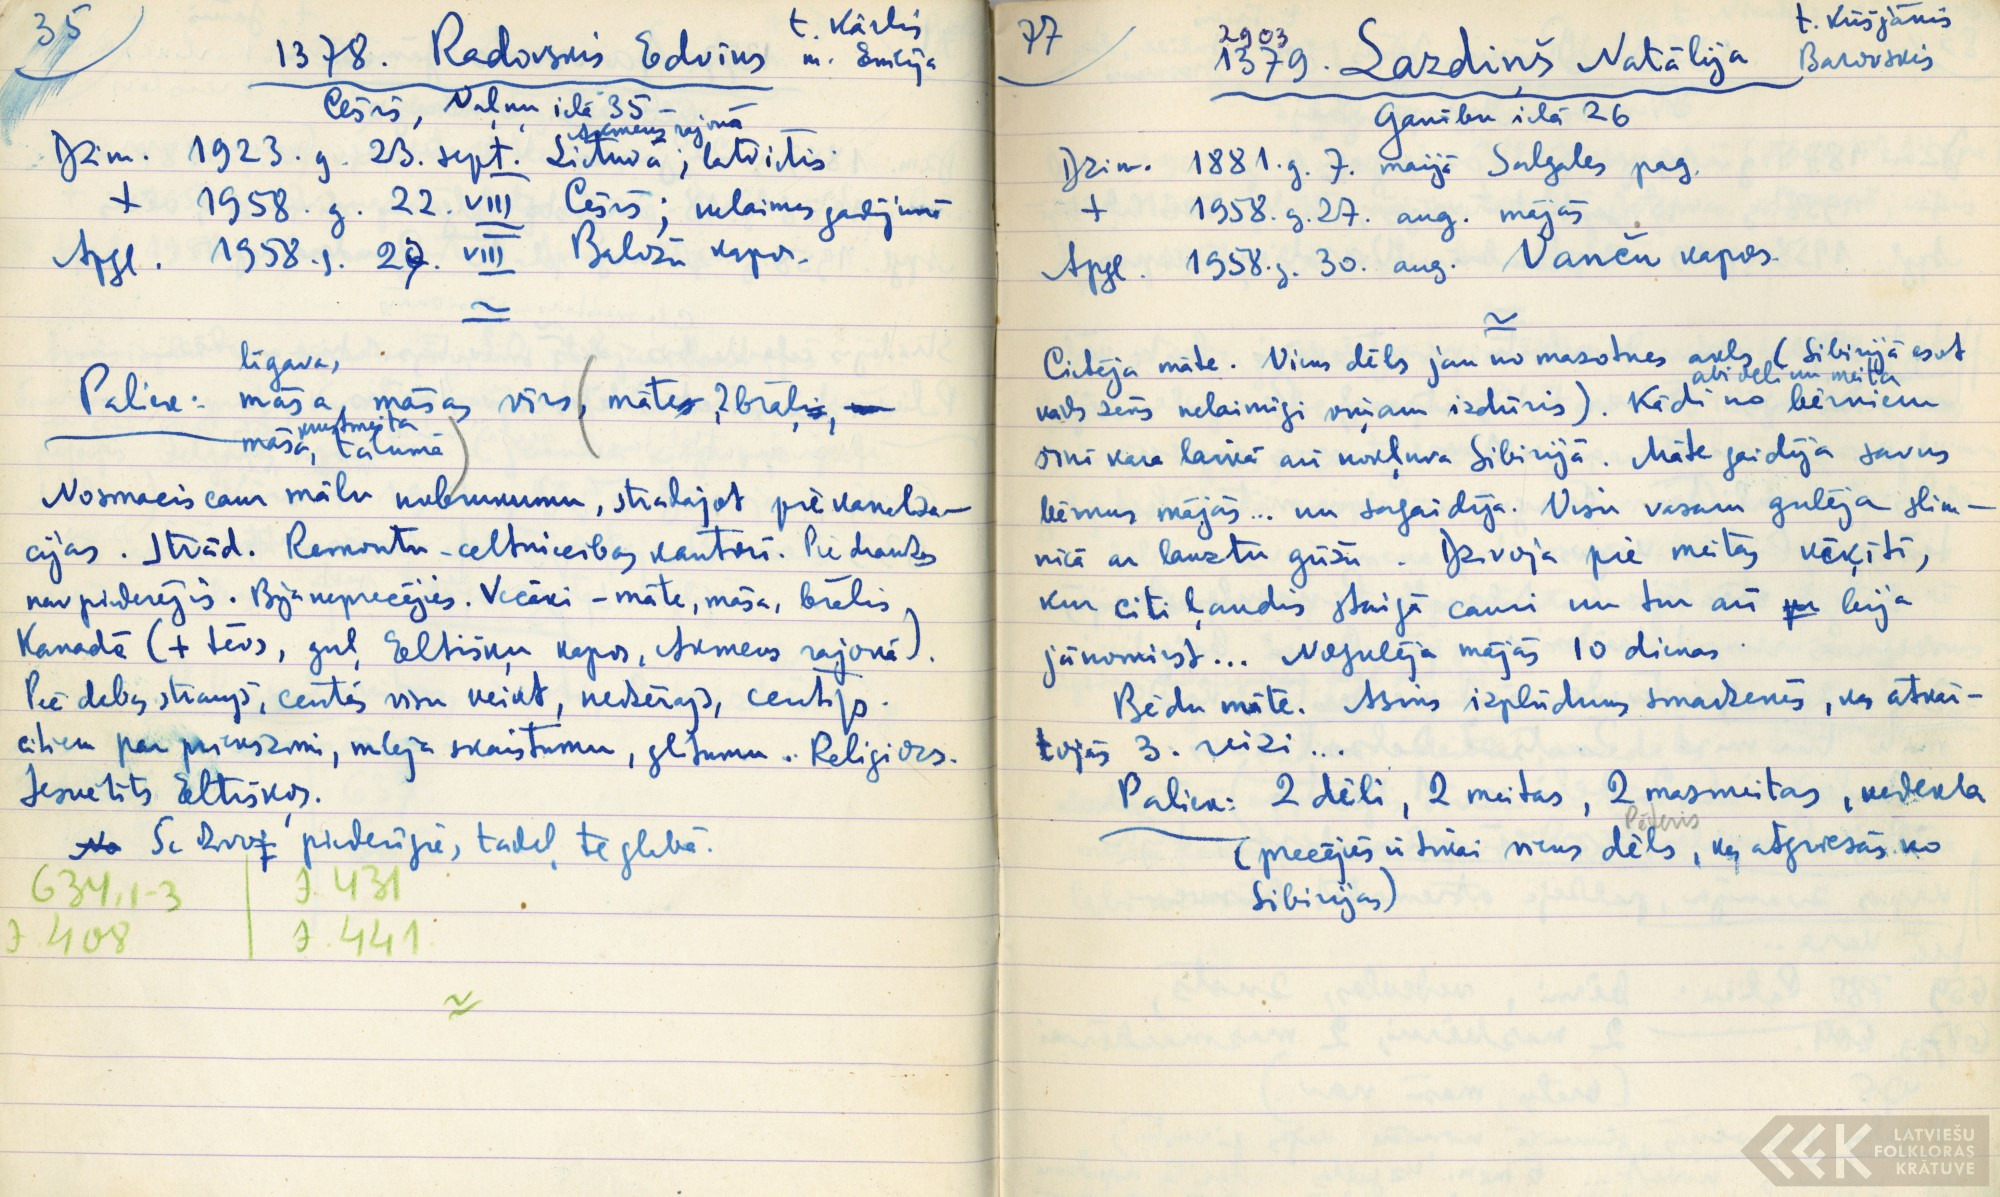 35
1378. Radovskis Edvīns
t. Kārlis
m. Emīlija
Cēsīs, Vaļņu ielā 35 –
Akmenes rajonā
Dzim. 1923. g. 23. sept. Lietuvā; latvietis
+ 1958. g. 22. VIII Cēsīs; nelaimes gadījumā
Apgl. 1958. g. 27. VIII Baložu kapos.
līgava,
Paliek: māsa, māsas vīrs, (māte, 2 brāļi,
krustmeita
māsa, tālumā)
Nosmacis zem mālu nobrukumu, strādājot pie kanaliza-
cijas. Strād. Remontu-celtniecības kantorī. Pie draudzes
nav piederējis. Bija neprecējies. Vecāki – māte, māsa, brālis
Kanadā (+ tēvs, guļ Eltišķu kapos, Akmenes rajonā).
Pēc dabas straujš, centās visu veikt, nedzērājs, centīgs.
citiem par priekšzīmi, mīlēja skaistumu, glītumu.. Religiozs.
Iesvētīts Eltišķos.
Še dzīvo piederīgie, tādēļ te glabā.
634,1-3
J. 408
J. 431
J. 441
77
2903
1379. Lazdiņš Natālija
t. Krišjānis
Barovskis
Ganību ielā 26
Dzim. 1881. g. 7. maijā Salgales pag.
+ 1958. g. 27. aug. mājās
Apgl. 1958. g. 30. aug. Vanču kapos.
Cietēja māte. Viens dēls jau no mazotnes akls, (Sibirijā esot
abi dēli un meita
kāds zēns nelaimīgi viņam izdūris). Kādi no bērniem
viņi kara laikā arī nokļuva Sibirijā. Māte gaidīja savus
bērnus mājās... un sagaidīja. Visu vasaru gulēja slim-
nīcā ar lauztu gūžu. Dzīvoja pie meitas ķēķītī,
kur citi ļaudis staigā cauri un tur arī bija
jānomirst... Nogulēja mājās 10 dienas.
Bēdu māte. Asins izplūdums smadzenēs, kas atkār-
tojās 3. reizi...
Paliek: 2 dēli, 2 meitas, 2 mazmeitas, vedekla
Pēteris
(precējies ir tikai viens dēls, kas atgriezās no
Sibirijas)
LATVIEŠU
FOLKLORAS
KRĀTUVE